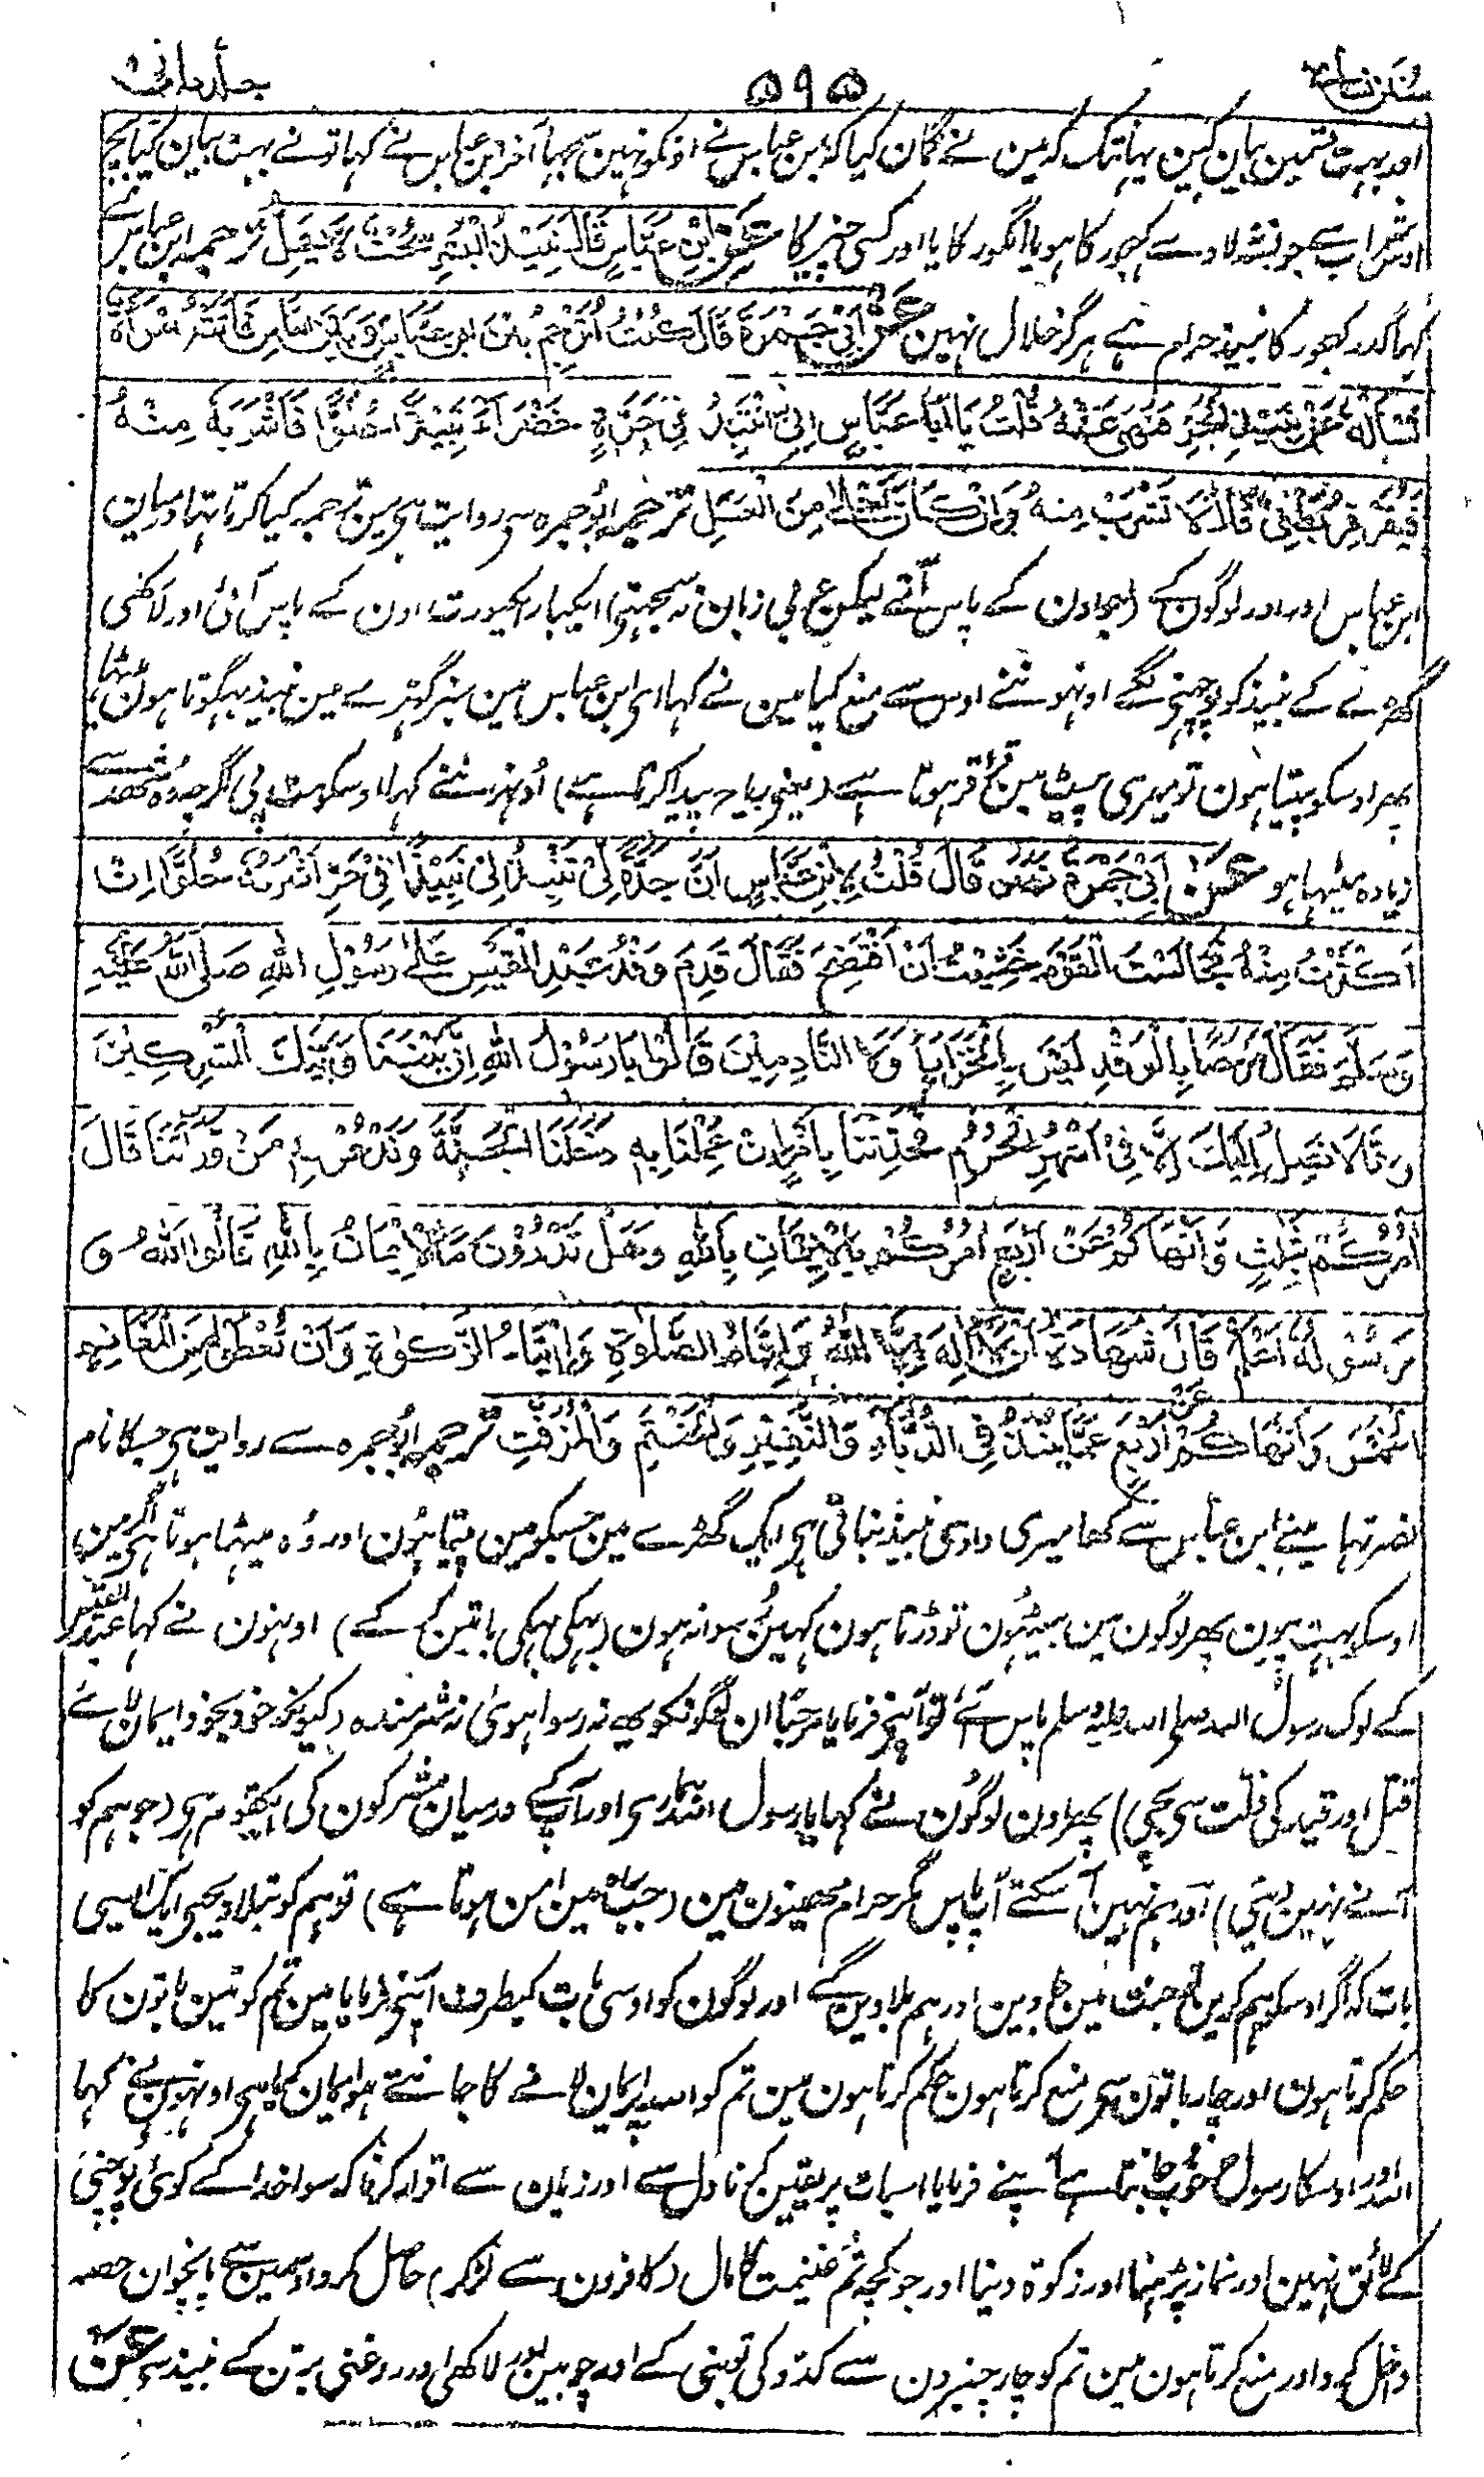 سنن نسائی ۵۹۵ جلد ثانی
اور بہت قسمین بیان کین یہانتک کہ مین نے گمان کیا کہ ابن عباس نے اونکو نہین سمجھا آخر ابن عباس نے کہا تو نے بہت بیان کیا بچ
اوس شراب سے جو نشہ لاوے کھجور کا ہو یا انگور کا یا اور کسی چیز کا عن ابن عباس قال نبیذ البسر سحت لا یحل ترجمہ ابن عباس نے
کہا گدر کھجور کا نبیذ حرام ہے ہرگز حلال نہین عن ابی جمرة قال کنت اترجم بین ابن عباس وبین الناس فاتته امرأة
تسأله عن نبیذ الجر فنهی عنه قلت یا ابا عباس انی انتبذ فی جرة خضراء نبیذا حلوا فاشربه منه
فیقرقر بطنی قال لا تشرب منه وان کان احلی من العسل ترجمہ ابو جمرہ سے روایت ہی مین ترجمہ کیا کرتا تہا درمیان
ابن عباس اور اور لوگون کے (جو اون کے پاس آتے لیکن عربی زبان نہ سمجہتے) ایکبار ایکعورت اون کے پاس آئی اور لاکھی
گھڑے کے نبیذ کو پوچہنے لگے اونہونے اوس سے منع کیا مین نے کہا ای ابن عباس مین سبز گہڑے مین نبیذ بہگوتا ہون میٹھا
پھر اوسکو پیتا ہون تو میری پیٹ مین قرقر ہوتا ہے (یعنی ریاح پیدا کرتا ہے) اونہونے کہا اوسکو مت پی اگرچہ وہ شہد سے
زیادہ میٹہا ہو عن ابی جمرة نصر قال قلت لابن عباس ان جدة لی تنبذ لی نبیذا فی جر اشربه حلوا ان
اکثرت منه فجالست القوم خشیت ان افتضح فقال قدم وفد عبد القیس علی رسول الله صلی الله علیه
وسلم فقال مرحبا بالوفد لیس بالخزایا ولا النادمین قالوا یا رسول الله ان بیننا وبینک المشرکین
وانا لا نصل الیک الا فی اشهر الحرم فحدثنا بامر ان عملنا به دخلنا الجنة وندعو به من وراءنا قال
آمرکم بثلث وانهاکم عن اربع آمرکم بالایمان بالله وهل تدرون ما الایمان بالله قالوا الله و
رسوله اعلم قال شهادة ان لا اله الا الله واقام الصلوة وایتاء الزکوة وان تعطوا من المغانم
الخمس وانهاکم عن اربع عما ینبذ فی الدباء والنقیر والحنتم والمزفت ترجمہ ابو جمرہ سے روایت ہی جسکا نام
نصر تہا مینے ابن عباس سے کھا میری دادی نبیذ بناتی ہی ایک گھڑے مین جسکو مین پیتا ہون اور وہ میٹہا ہوتا ہی اگر مین
اوسکو بہت پیون پھر لوگون مین بیٹہون تو ڈرتا ہون کہین رسوا نہ ہون (بہکی بہکی باتین کر کے) اونہون نے کہا عبد القیس
کے لوگ رسول اللہ صلی اللہ علیہ وسلم پاس آئے تو آپنے فرمایا مرحبا ان لوگونکو جو نہ رسوا ہوئی نہ شرمندہ (کیونکہ خود بخود ایمان لائے
قتل اور قید کی ذلت سی بچی) پھر اون لوگون نے کہا یا رسول اللہ ہماری اور آپ کے درمیان مشرکون کی ایکقوم ہی (جو ہم کو
آنے نہین دیتی) اور ہم نہین آ سکتے آپ پاس مگر حرام مہینون مین (جب امن ہوتا ہے) تو ہم کو بتلا دیجیے ایک ایسی
بات کہ اگر اوسکو ہم کرین تو جنت مین جاوین اور ہم بلاوین گے اور لوگون کو اوسی بات کیطرف آپنے فرمایا مین تم کو تین باتون کا
حکم کرتا ہون اور چار باتون سی منع کرتا ہون حکم کرتا ہون مین تم کو اللہ پر ایمان لانے کا جانتے ہو ایمان کیا ہی اونہون نے کہا
اللہ اور اوسکا رسول خوب جانتا ہے آپنے فرمایا اسبات پر یقین کرنا دل سے اور زبان سے اقرار کرنا کہ سوا خدا کے کوئی پوجنی
کے لائق نہین اور نماز پڑہنا اور زکوۃ دینا اور جو کچہ تم غنیمت کا مال (کافرون سے لڑ کر) حاصل کرو اوسمین سے پانچوان حصہ
داخل کرو اور منع کرتا ہون مین تم کو چار چیزون سے کدو کی تونبی کے اور چوبین اور لاکھی اور روغنی برتن کے نبیذ سے عن